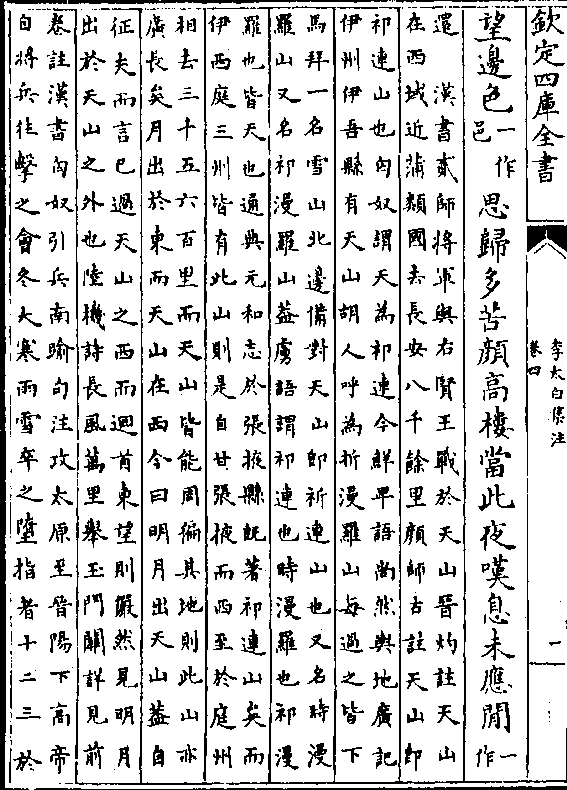 欽定四庫全書
李太白集注
卷四
一
望邊色一作邑思歸多苦顏高樓當此夜嘆息未應閒一作
還 漢書貳師將軍與右賢王戰於天山晉灼註天山
在西域近蒲類國去長安八千餘里顏師古註天山即
祁連山也匈奴謂天為祁連今鮮卑語尚然輿地廣記
伊州伊吾縣有天山胡人呼為折漫羅山每過之皆下
馬拜一名雪山北邊備對天山即祈連山也又名時漫
羅山又名祁漫羅山蓋虜語謂祁連也時漫羅也祁漫
羅也皆天也通典元和志於張掖縣既著祁連山矣而
伊西庭三州皆有此山則是自甘張掖而西至於庭州
相去三十五六百里而天山皆能周徧其地則此山亦
廣長矣月出於東而天山在西今曰明月出天山蓋自
征夫而言已過天山之西而迴首東望則儼然見明月
出於天山之外也陸機詩長風萬里舉玉門關詳見前
卷註漢書匈奴引兵南踰句注攻太原至晉陽下高帝
自將兵往擊之會冬大寒雨雪卒之墮指者十二三於